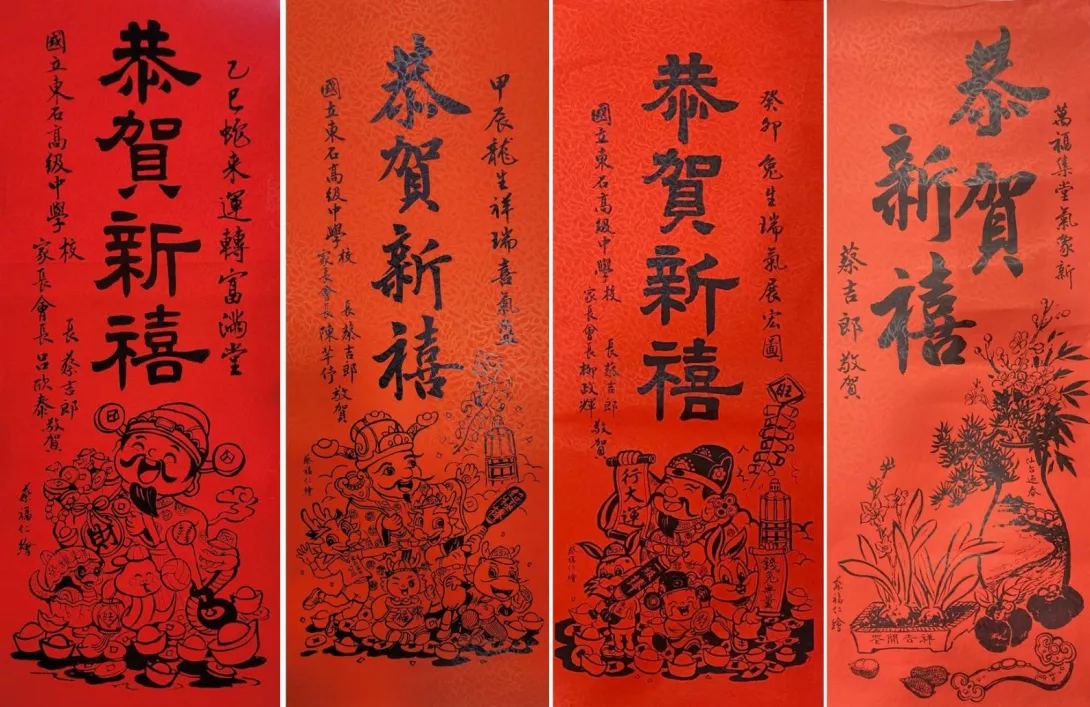 恭賀新禧
乙巳蛇来運轉富滿堂
國立東石高級中學
校長蔡吉郎
家長會長呂欣泰敬賀
財
蔡福仁繪
恭賀新禧
甲辰龍生祥瑞喜氣盈
國立東石高級中學
校長蔡吉郎
家長會長陳苹停敬賀
蔡福仁繪
恭賀新禧
癸卯兔生瑞氣展宏圖
國立東石高級中學
校長蔡吉郎
家長會長柳政輝敬賀
旺
行大運
蔡福仁繪
恭賀新禧
萬福集堂氣象新
蔡吉郎敬賀
仙台迎春
花開吉祥
蔡福仁繪